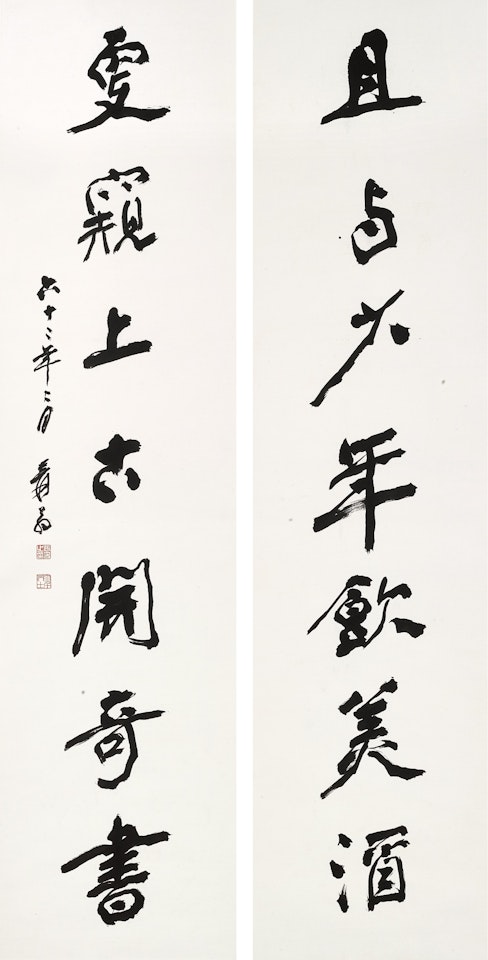 且与少年飲美酒
更窺上古開奇書
六十二年二月 爰翁